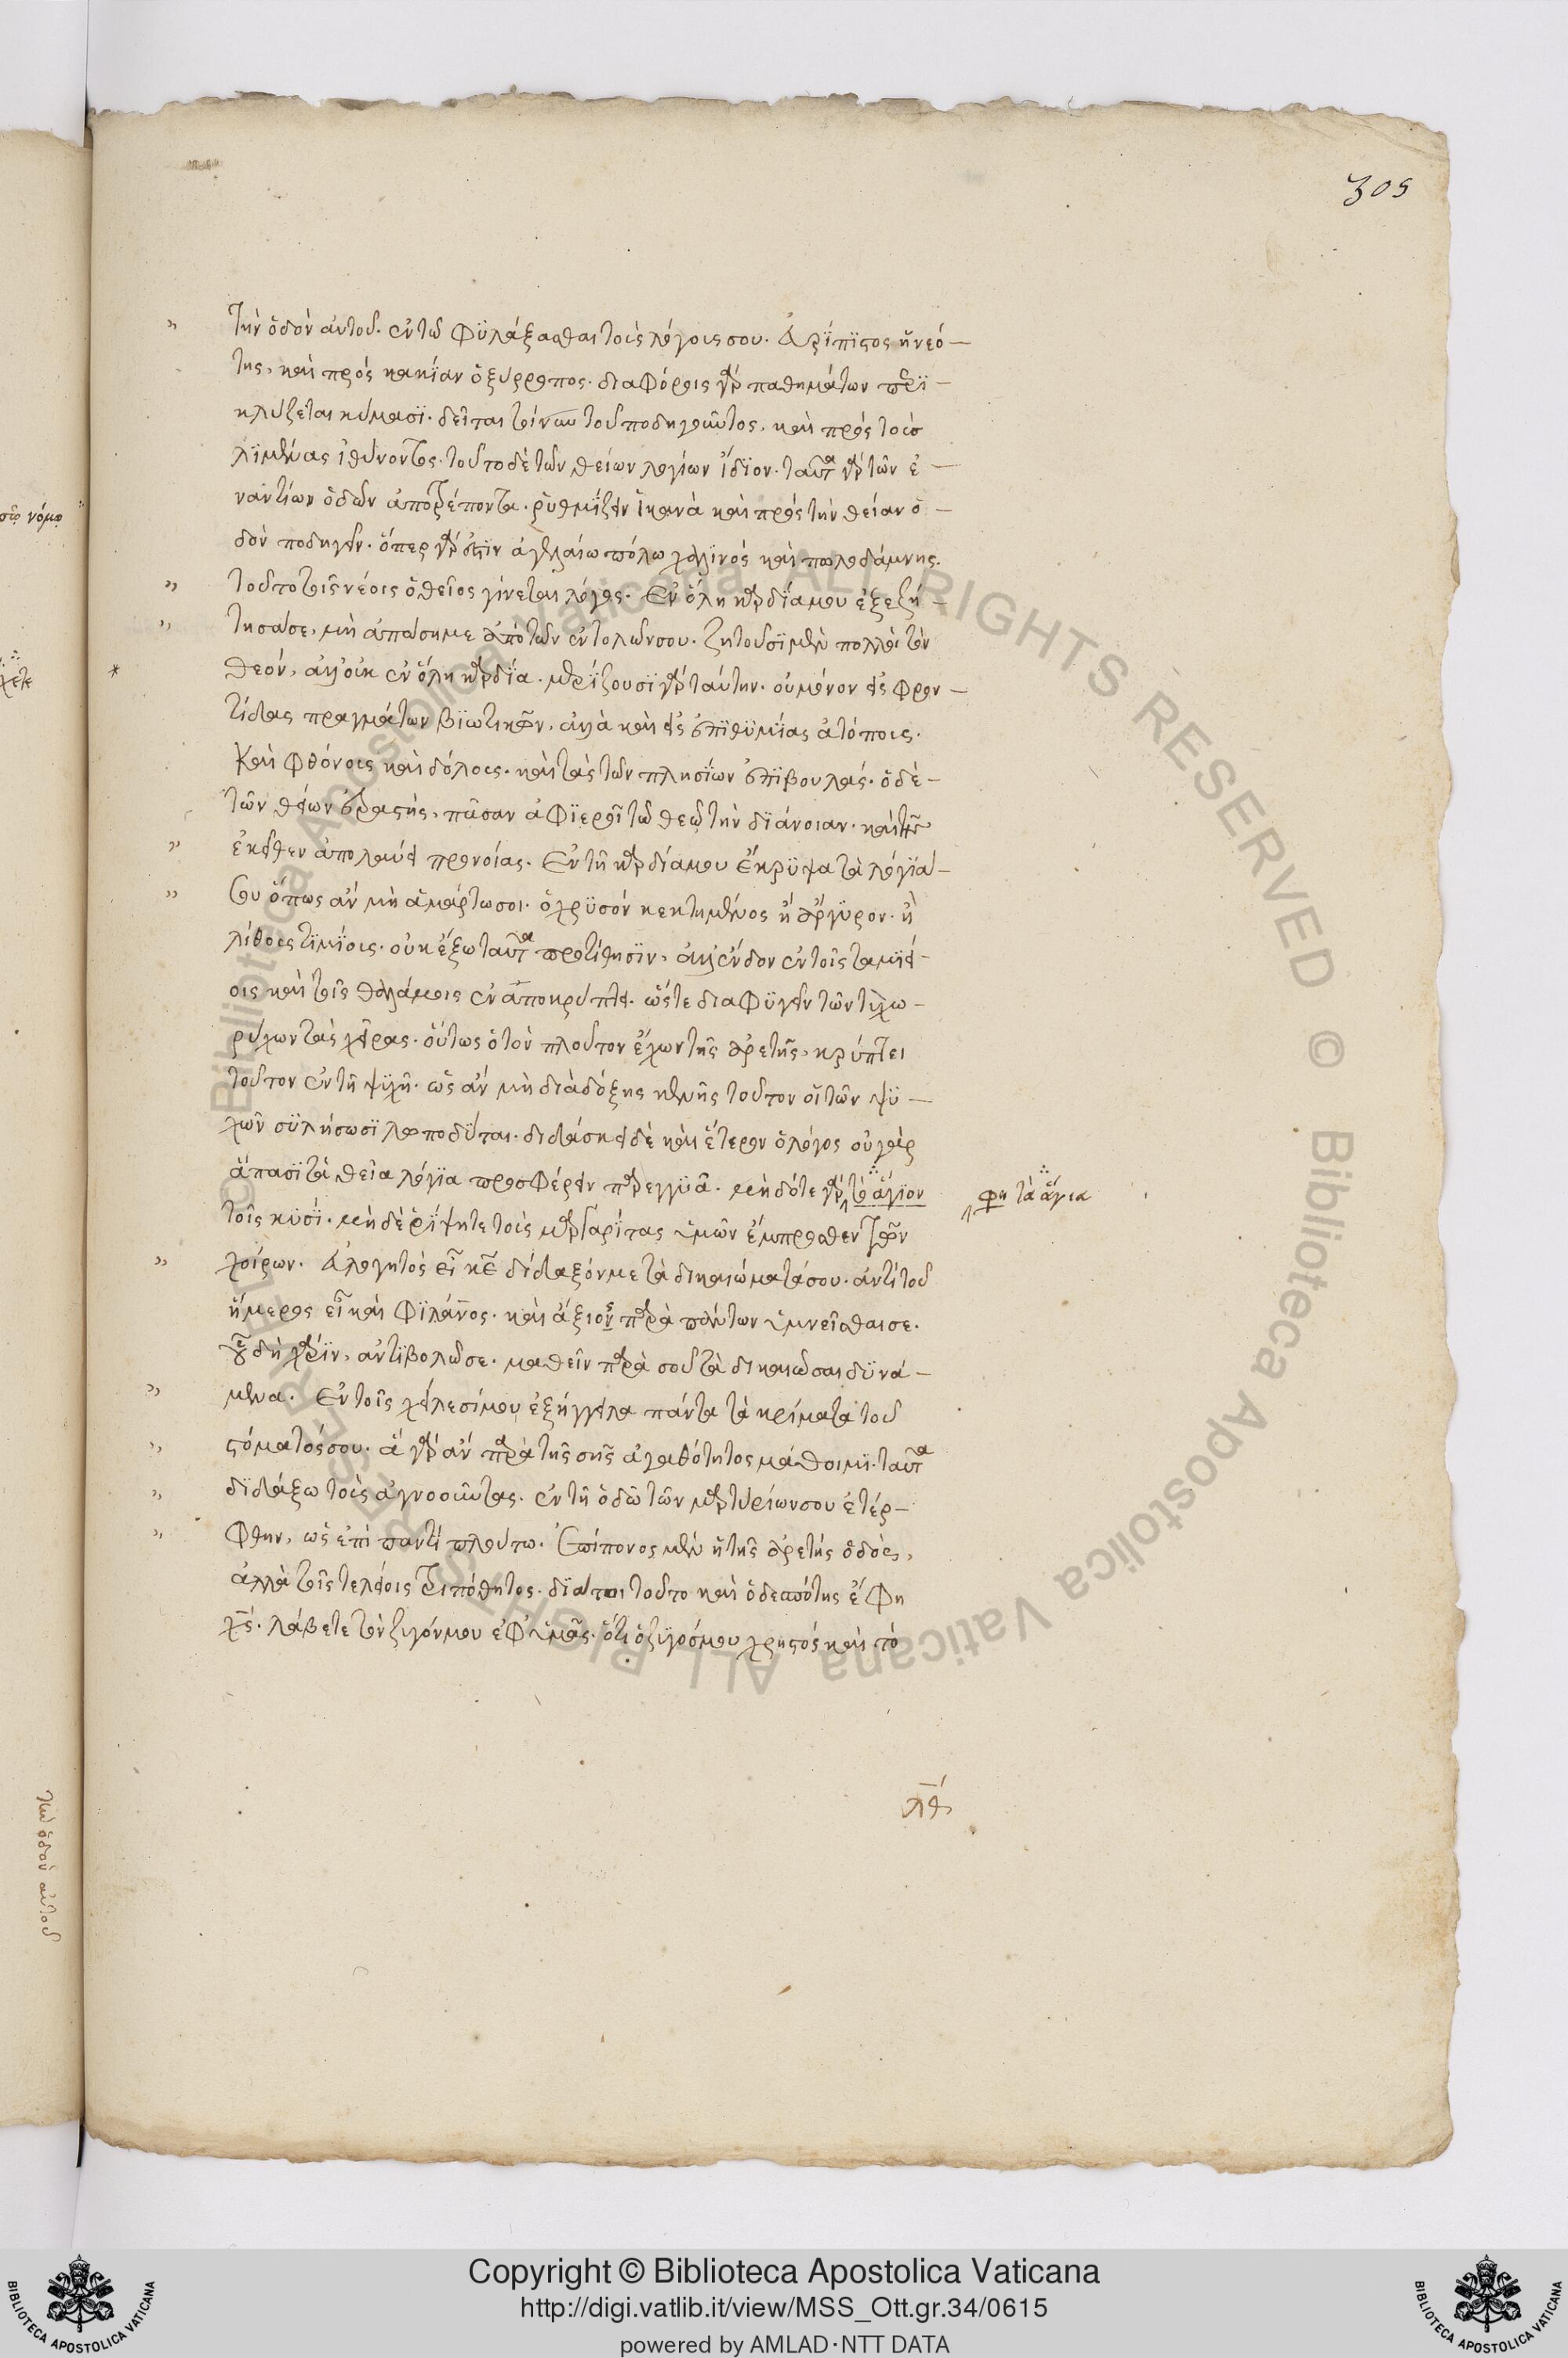 305
τὴν ὁδὸν αὐτοῦ. ἐν τῶ φϋλάξασθαι τοὺς λόγους σου. Ἀρίπϊστος ἡ νεό-
της, καὶ πρὸς κακΐαν ὀξύρροπος. διαφόροις γὰρ παθημάτων περϊ-
κλύζεται κύμασϊ. δεῖται τοίνυν τοῦ ποδηγοῦντος, καὶ πρὸς τοὺσ
λϊμένας ἰθύνοντος. τοῦτο δὲ τῶν θείων λογίων ἴδϊον. ταῦτα γὰρ τῶν ἐ-
ναντίων ὁδῶν ἀποτρέποντα. ῥυθμΐζειν ἱκανὰ καὶ πρὸς τὴν θείαν ὁ-
δὸν ποδηγεῖν. ὅπερ γάρ ἐστϊν ἀγελαίω πώλω χαλϊνὸς καὶ πωλοδάμνης.
τοῦτο τοῖς νέοις ὁ θεῖος γίνεται λόγος. Ἐν ὅλη καρδΐα μου ἐξεζή-
τησά σε, μὴ ἀπώσημε ἀπὸ τῶν ἐντολῶν σου. ζητοῦσϊ μὲν πολλοὶ τὸν
θεόν, ἀλλ' οὐκ ἐν ὅλη καρδΐα. μερΐζουσϊ γὰρ ταύτην. οὐ μόνον εἰς φρον-
τίδας πραγμάτων βϊωτικῶν, ἀλλὰ καὶ εἰς ἐπϊθϋμΐας ἀτόπους.
καὶ φθόνους καὶ δόλους. καὶ τὰς τῶν πλησΐων ἐπϊβουλάς. ὁ δὲ-
τῶν θείων ἐραστὴς, πᾶσαν ἀφϊεροῖ τῶ θεῶ τὴν δϊάνοιαν. καὶ τῆς
ἐκεῖθεν ἀπολαύει προνοίας. Ἐν τῆ καρδία μου ἔκρϋψα τὰ λόγϊά-
σου ὅπως ἂν μὴ ἁμάρτω σοι. ὁ χρϋσὸν κεκτημένος ἢ ἄργϋρον. ἢ
λίθους τϊμΐους. οὐκ ἔξω ταῦτα προτίθησϊν, ἀλλ' ἔνδον ἐν τοῖς ταμϊεί-
οις καὶ τοῖς θαλάμοις ἐναποκρύπτει. ὥστε διαφϋγεῖν τῶν τιχω-
ρύχων τὰς χεῖρας. οὕτως ὁ τὸν πλοῦτον ἔχων τῆς ἀρετῆς, κρύπτει
τοῦτον ἐν τῆ ψϋχῆ. ὡς ἂν μὴ διὰ δόξης κενῆς τοῦτον οἱ τῶν ψϋ-
χῶν σϋλήσωσϊ λωποδΰται. διδάσκει δὲ καὶ ἕτερον ὁ λόγος οὐ γὰρ
ἅπασϊ τὰ θεῖα λόγϊα προσφέρειν παρεγγϋᾶ. μὴ δότε γὰρ τὸ ἅγϊον
φη τὰ ἅγια
τοῖς κϋσΐ. μὴ δὲ ῥΐψητε τοὺς μαργαρίτας ὑμῶν ἔμπροσθεν τῶν
χοίρων. Εὐλογητὸς εἶ κε δίδαξόν με τὰ δικαιώματά σου. ἀντὶ τοῦ
ἥμερος εἶ καὶ φϊλάνος. καὶ ἄξιον παρὰ πάντων ὑμνεῖσθαι σε.
οὗ δὴ χάρϊν, ἀντϊβολῶ σε. μαθεῖν παρὰ σοῦ τὰ δικαιῶσαι δϋνά-
μενα. Ἐν τοῖς χείλεσί μου ἐξήγγειλα πάντα τὰ κρίματα τοῦ
στόματός σου. ἃ γὰρ ἂν παρὰ τῆς σῆς ἀγαθότητος μάθοιμϊ. ταῦτα
δϊδάξω τοὺς ἀγνοοῦντας. ἐν τῆ ὁδῶ τῶν μαρτυρίων σου ἐτέρ-
φθην, ὡς ἐπὶ παντὶ πλούτω. Ἐπίπονος μὲν ἡ τῆς ἀρετῆς ὁδὸς,
ἀλλὰ τοῖς τελείοις τριπόθητος. δϊά τοι τοῦτο καὶ ὁ δεσπότης ἔφη
χς. λάβετε τὸν ζυγόν μου ἐφ' ὑμᾶς. ὅτι ὁ ζυγός μου χρηστὸς καὶ τὸ
λθ
τὴν ὁδὸν αὐτοῦ
Copyright © Biblioteca Apostolica Vaticana
http://digi.vatlib.it/view/MSS_Ott.gr.34/0615
powered by AMLAD·NTT DATA
BIBLIOTECA APOSTOLICA VATICANA
BIBLIOTECA APOSTOLICA VATICANA
© Biblioteca Apostolica Vaticana ALL RIGHTS RESERVED © Biblioteca Apostolica Vaticana ALL RIGHTS RESERVED